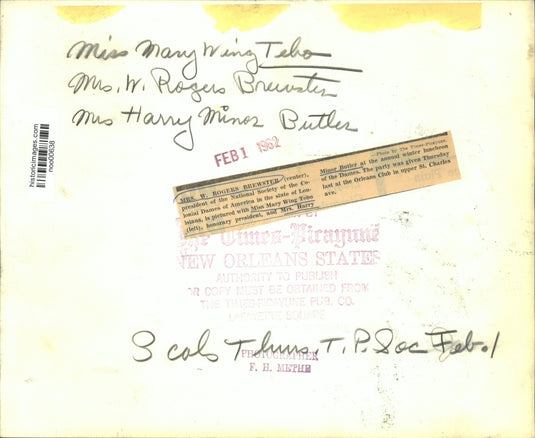 Miss Mary Wing Tebo
Mrs. W. Rogers Brewster
Mrs Harry Minor Butler
historicimages.com
FEB 1 1962
MRS. W. ROGERS BREWSTER (center),
president of the National Society of the Co-
lonial Dames of America in the state of Lou-
isiana, is pictured with Miss Mary Wing Tebo
(left), honorary president, and Mrs. Harry
—Photo by The Times-Picayune.
Minor Butler at the annual winter luncheon
of the Dames. The party was given Thursday
last at the Orleans Club in upper St. Charles
ave.
The Times-Picayune
NEW ORLEANS STATES
AUTHORITY TO PUBLISH
OR COPY MUST BE OBTAINED FROM
THE TIMES-PICAYUNE PUB. CO.
LAFAYETTE SQUARE
3 cols Thurs. T. P. Soc Feb. 1
PHOTOGRAPHER
F. H. METHE